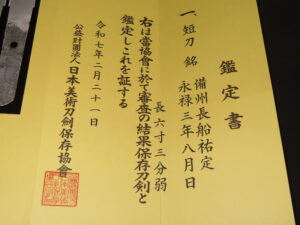 鑑定書
一、短刀 銘 備州長船祐定
永禄三年八月日
長六寸三分弱
右は當協會に於て審査の結果保存刀剣と
鑑定しこれを証する
令和七年二月二十一日
公益財團法人 日本美術刀劍保存協會